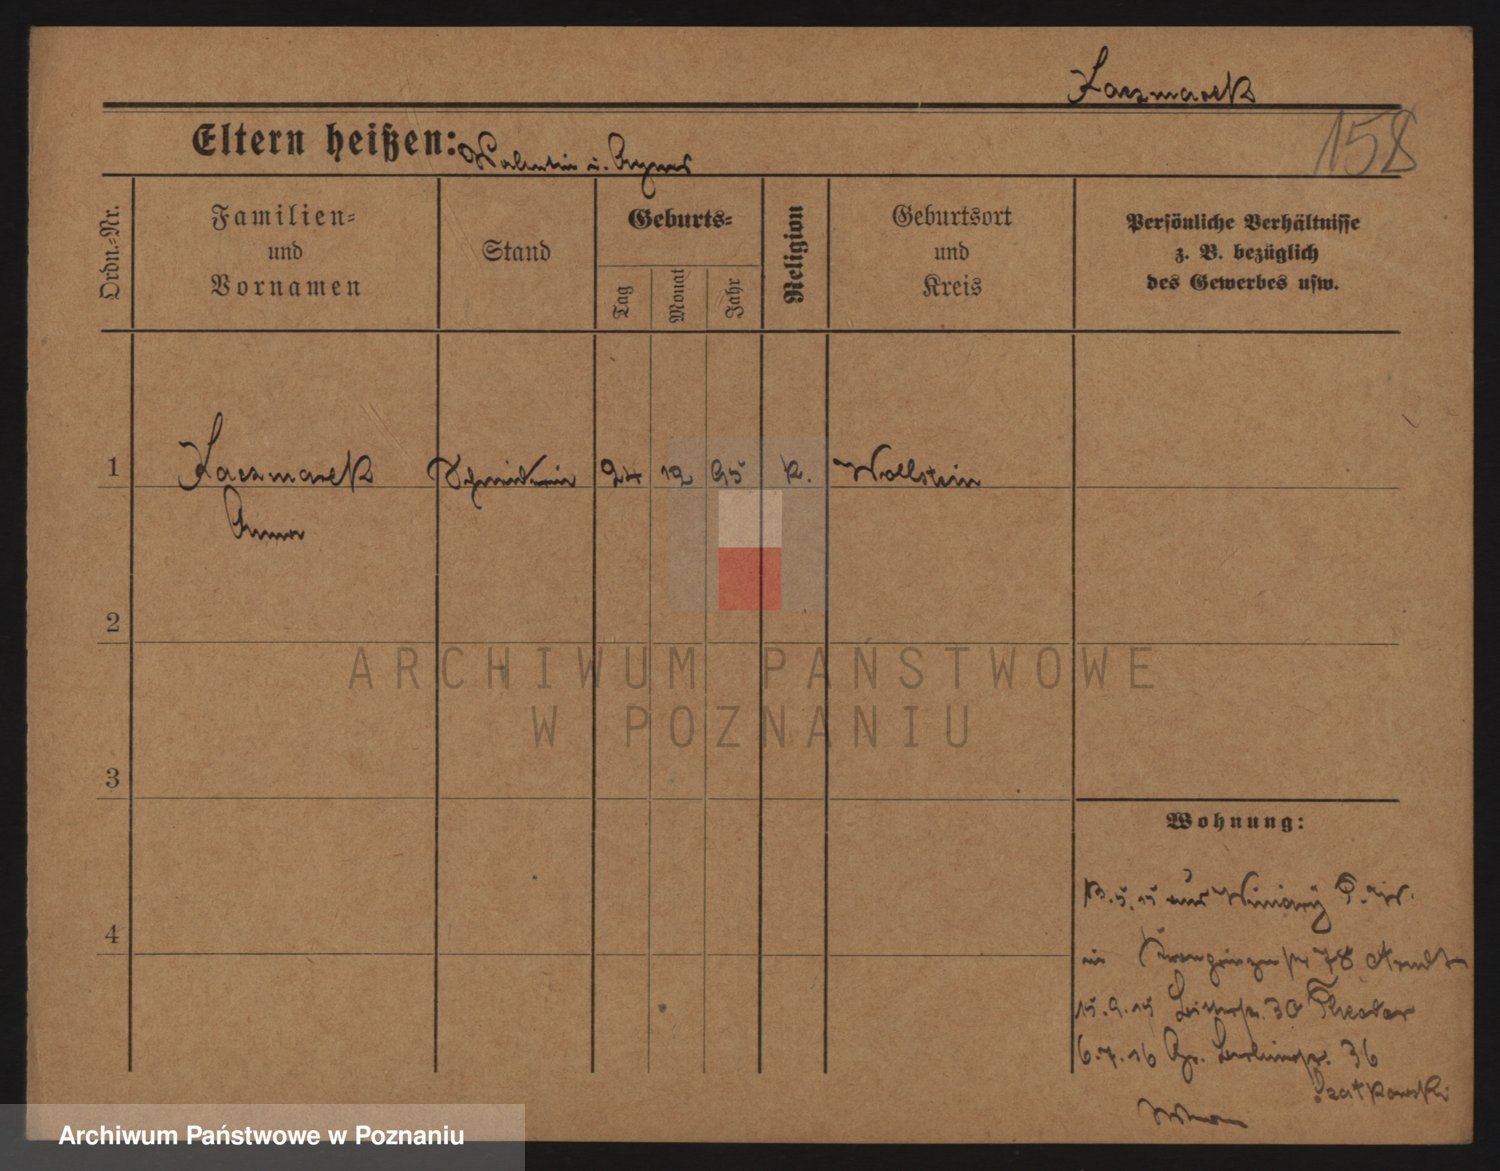 Kaczmarek
158
Eltern heißen: Valentin u. Agnes
Ordn.-Nr.
Familien-
und
Vornamen
Stand
Geburts-
Tag
Monat
Jahr
Religion
Geburtsort
und
Kreis
Persönliche Verhältnisse
z. B. bezüglich
des Gewerbes usw.
1
Kaczmarek
Anna
24 12 95 k. Wollstein
2
ARCHIWUM PAŃSTWOWE
W POZNANIU
3
Wohnung:
4
.5.15 aus Winiary
in Kronprinzenstr 78
15.9.15 30 Theater
6.7.16 Gr. Berlinerstr. 36
Szatkowski
Archiwum Państwowe w Poznaniu